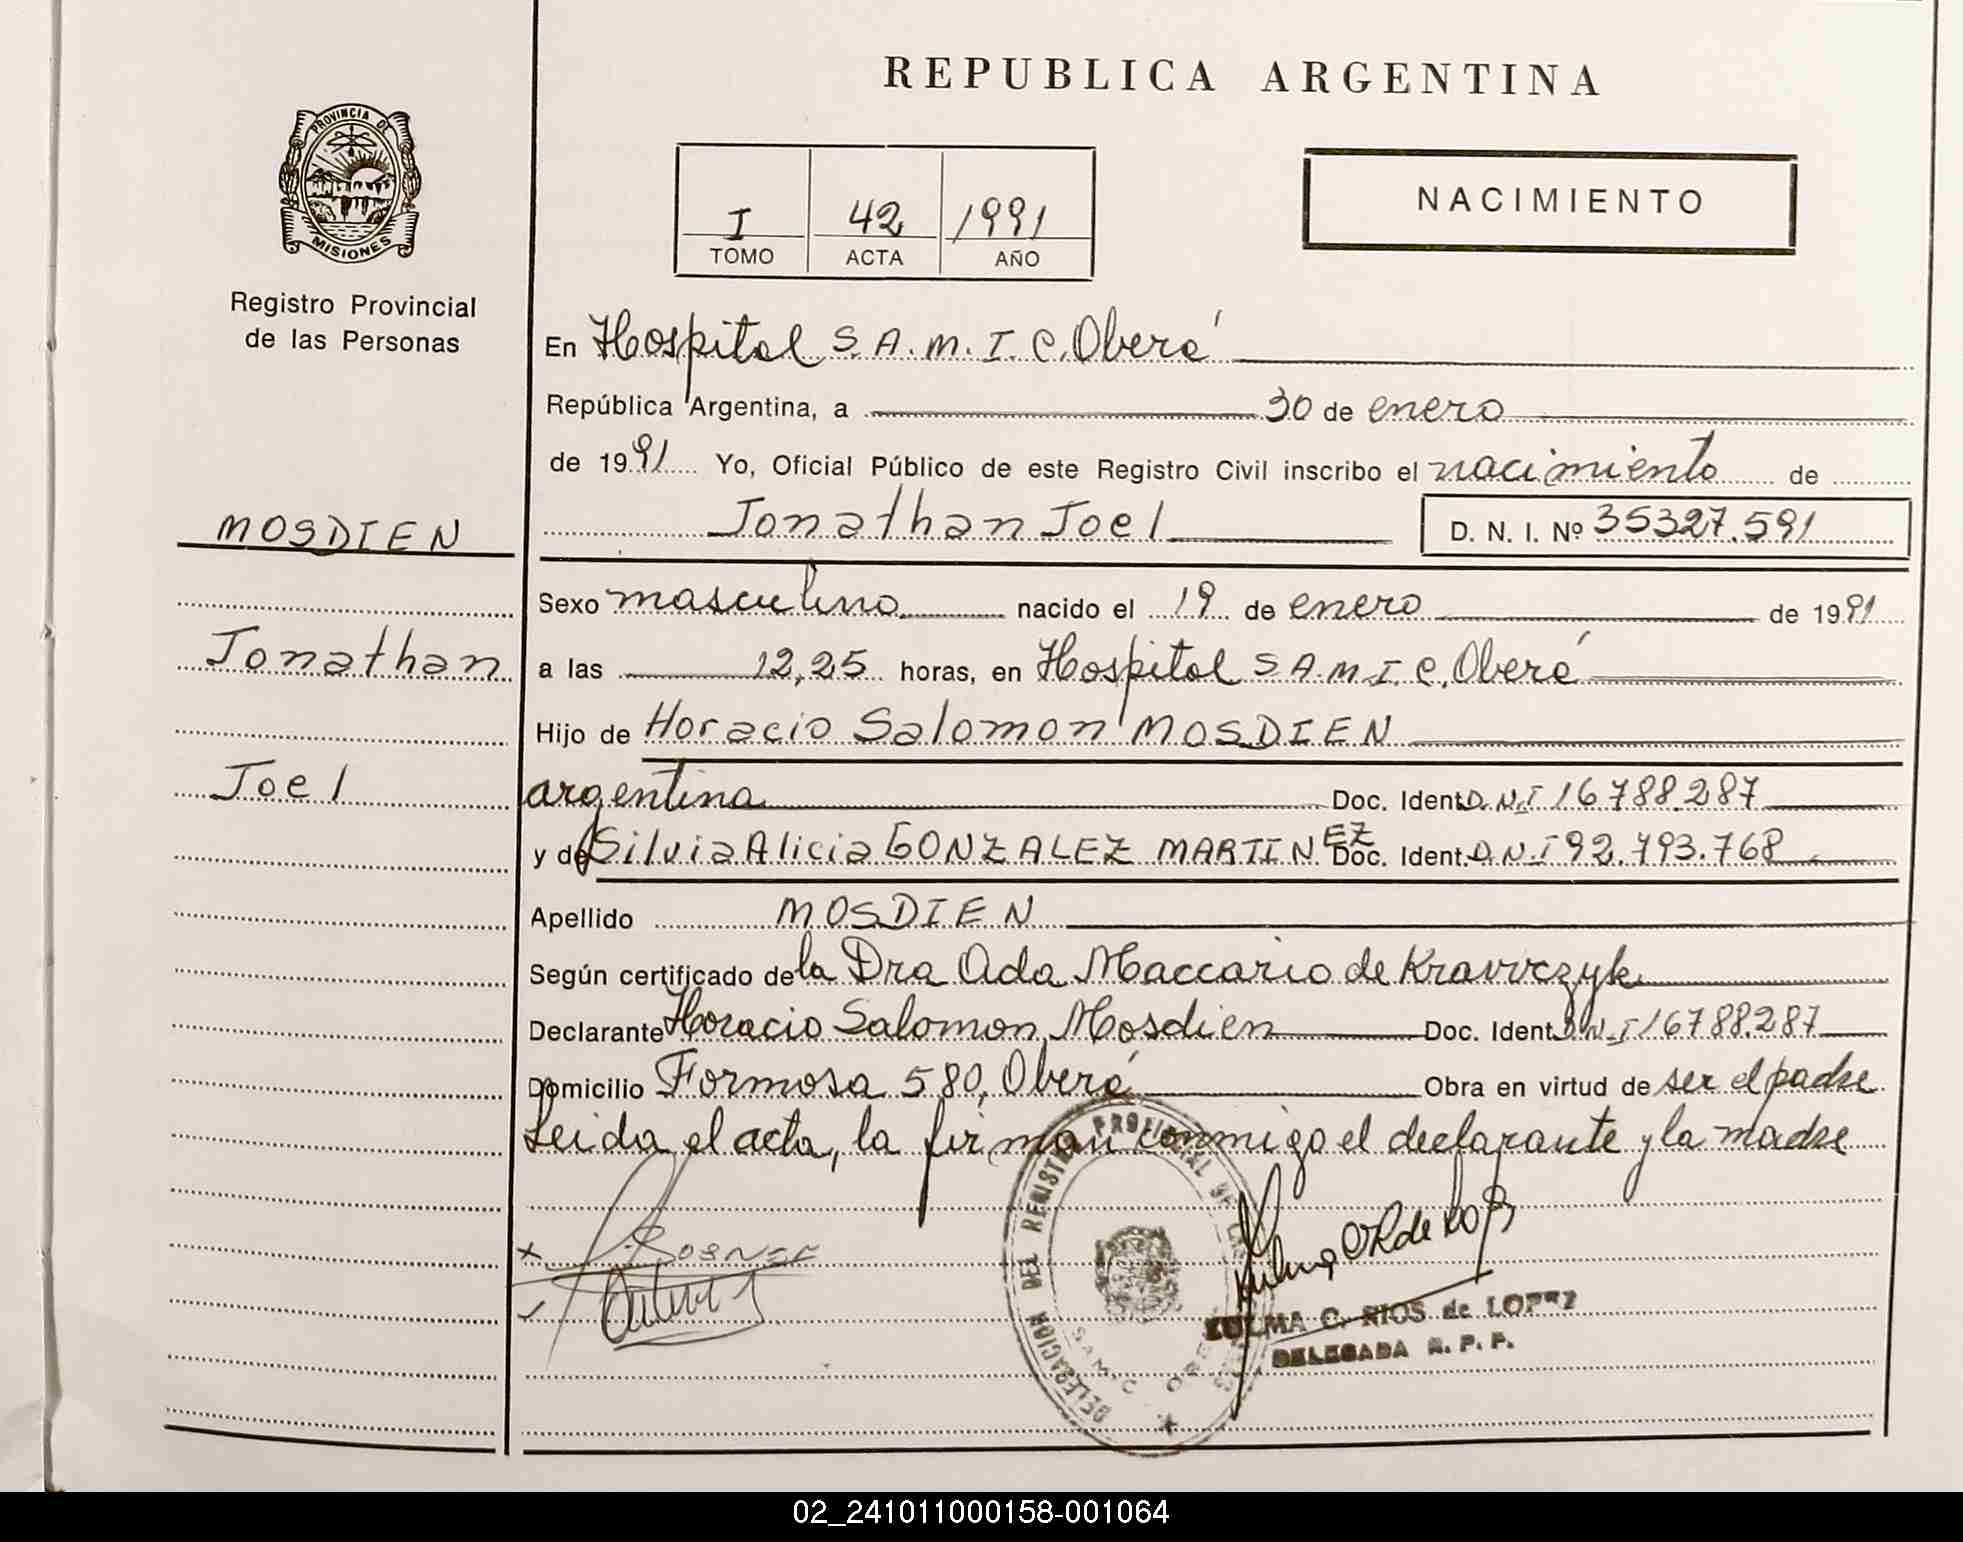 REPUBLICA ARGENTINA
PROVINCIA DE
MISIONES
Registro Provincial
de las Personas
I 42 1991
TOMO ACTA AÑO
NACIMIENTO
En Hospital S.A.M.I.C. Oberá
República Argentina, a 30 de enero
de 1991 Yo, Oficial Público de este Registro Civil inscribo el nacimiento de
Jonathan Joel D. N. I. Nº 35327.591
MOSDIEN
Jonathan
Joel
Sexo masculino nacido el 19 de enero de 1991
a las 12,25 horas, en Hospital S.A.M.I.C. Oberá
Hijo de Horacio Salomon MOSDIEN
argentina Doc. Ident. D.N.I 16788.287
y de Silvia Alicia GONZALEZ MARTINEZ Doc. Ident. D.N.I 92.793.768
Apellido MOSDIEN
Según certificado de la Dra Ada Maccario de Kravvczyk
Declarante Horacio Salomon Mosdien Doc. Ident. D.N.I 16788.287
Domicilio Formosa 580, Oberá Obra en virtud de ser el padre
Leida el acta, la firman conmigo el declarante y la madre
DELEGACION DEL REGISTRO PROVINCIAL DE LAS
SAMIC
ZULMA C. RIOS de LOPEZ
DELEGADA R. P. P.
02_241011000158-001064